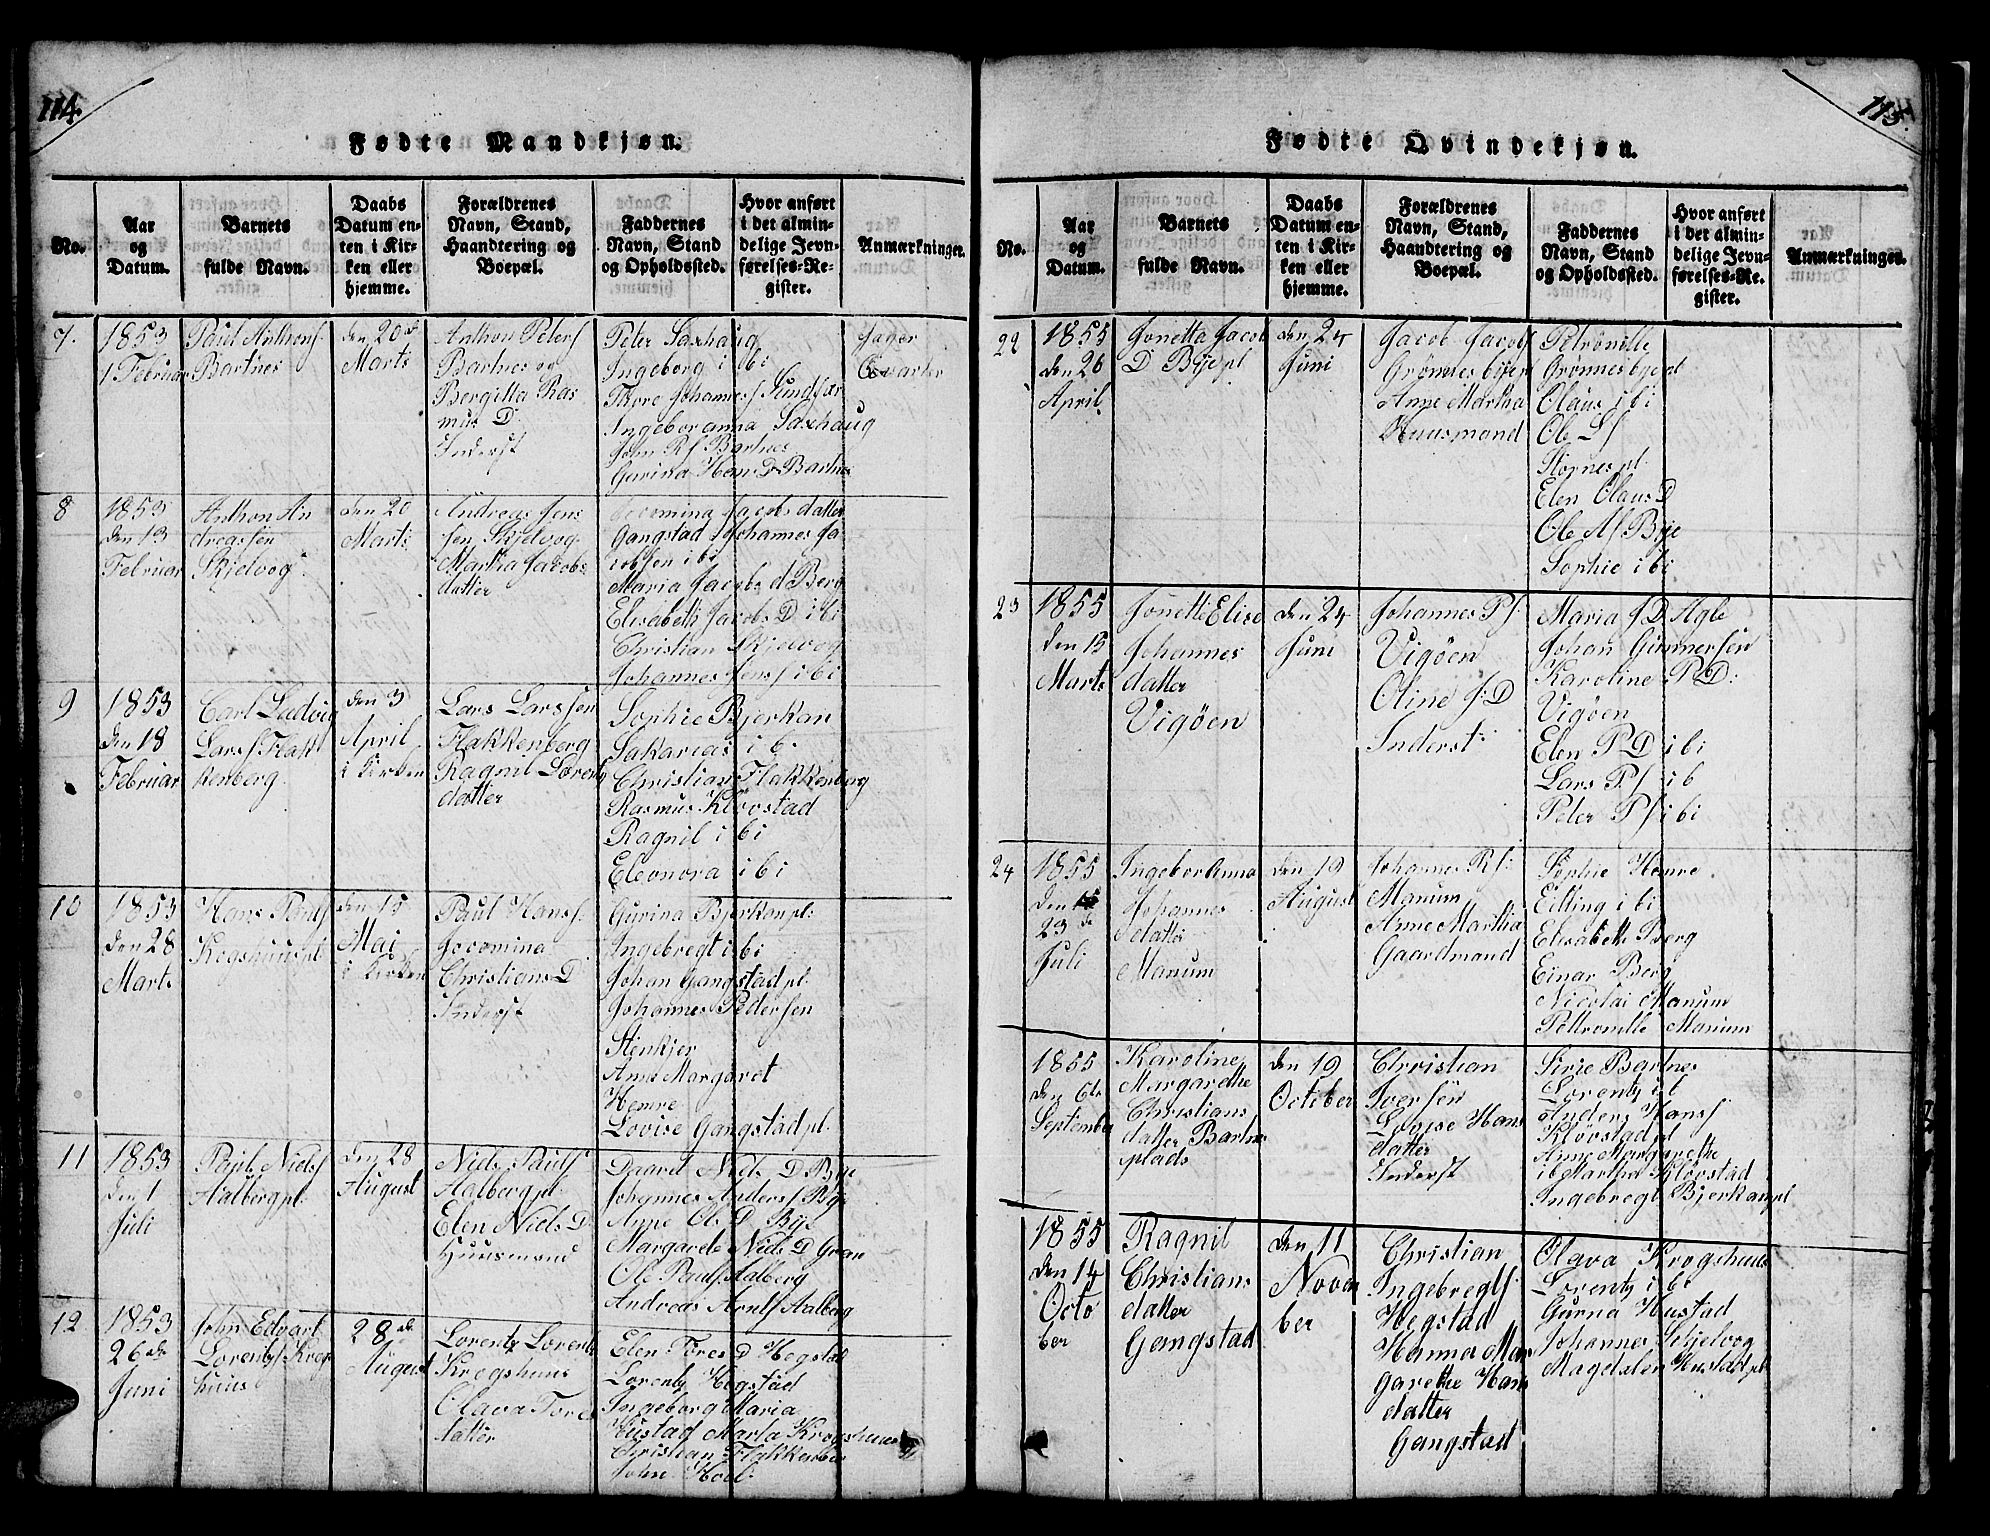 114.
Fødte Mandkjøn.
No.
Aar
og
Datum.
Barnets
fulde Navn.
Daabs
Datum en-
ten i Kir-
ken eller
hjemme.
Forældrenes
Navn, Stand,
Haandtering og
Boepæl.
Faddernes
Navn, Stand
og Opholdssted.
Hvor anført
i det almin-
delige Jevn-
førelses-Re-
gister.
Anmærkninger.
7.
1853
1 Februar
Paul Anthons
Bartnes
den 20de
Marts
Anthon Peters
Bartnes og
Bergitta Ras
mus D
Inderst
Peter Saxhaug
Ingeborg i bi
Thore Johannes Sundfær
Ingeboranna Saxhaug
John Rs Bartnes
Gurina Hans D Bartnes
8
1853
den 13
Februar
Anthon An
dreassen
Skjelvog
den 20
Marts
Andreas Jens
sen Skjelvog
Martha Jacobs
datter
Jocomina Jacobs datter
Gangstad Johannes Ja
cobsen i bi
Maria Jacobs d Berg
Elisabeth Jacobs D i bi
Christian Skjelvog
Johannes Jens i bi
9
1853
den 18
Februar
Carl Ludvig
Lars Flak
kenberg
den 3
April
i Kirken
Lars Larssen
Flakkenberg
Ragnil Lorents
datter
Sophie Bjerkan
Sakarias i bi
Christian Flakkenberg
Rasmus Kløvstad
Ragnil i bi
Eleonora i bi
10
1853
den 28
Marts
Hans Pauls
Kogshuuspl
den 15
Mai
i Kirken
Paul Hans
Jocomina
Christians D
Inderst
Gurina Bjerkanpl:
Ingebregt i bi
Johan Gangstadpl.
Johannes Pedersen
Stenkjer
Ann Margaret
Hemre
Lovise Gangstadpl.
11
1853
den 1
Juli
Paul Niels
Aalbergpl.
den 28
August
Niels Pauls
Aalbergpl.
Elen Niels D
Huusmand
Daaret Niels D Bye
Johannes Anders Bye
Anne Ols D Bye
Margarete Niels D Gran
Ole Pauls Aalberg
Andreas Arnts Aalberg
12
1853
26de
Juni
John Edvart
Lorents Krogs
huus
28de
August
Lorents Lorents
Krogshuus
Olava Tores
datter
Elen Tores D Hegstad
Lorents Hegstad
Ingeborg Maria
Hustad Marta Krogshuus
Christian Flakkenber
John Hoel
115.
Fødte Qvindekjøn.
No.
Aar
og
Datum.
Barnets
fulde Navn.
Daabs
Datum en-
ten i Kir-
ken eller
hjemme.
Forældrenes
Navn, Stand,
Haandtering og
Boepæl.
Faddernes
Navn, Stand
og Opholdssted.
Hvor anført
i det almin-
delige Jevn-
førelses-Re-
gister.
Anmærkninger.
22
1855
den 26
April
Jonetta Jacob
D Byepl
den 24
Juni
Jacob Jacobs
Grønnesbyen
Anne Martha
Huusmand
Petronille
Grønnesbyepl
Olaus i bi
Ole Ls
Stornespl.
Elen Olaus D
Ole Als Bye
Sophie i bi
23
1855
den 15
Marts
Jonette Elise
Johannes
datter
Vigøen
den 24
Juni
Johannes Ps
Vigøen
Oline J: D
Inderst:
Maria J D Agle
Johan Gunnersen
Karoline P D:
Vigøen
Elen P D i bi
Lars Ps i b
Peter Ps i bi
24
1855
den
23de
Juli
Ingeboranna
Johannes
datter
Manum
den 19
August
Johannes Rs:
Manum
Anne Martha
Gaardmand
Sophie Hemre
Eilling i bi
Elisabeth Berg
Einar Berg
Nicolai Manum
Pettronille Manum
1855
den 6te
September
Karoline
Margarethe
Christians
datter Bartnes
plads
den 19
October
Christian
Iversen
Lovise Hans
datter
Inderst
Sirie Bartnes
Lorents i b
Anders Hans
Kløvstadpl
Anne Margarethe
i b Martha Kløvstad
Ingebregt Bjerkanpl
1855
den 14
Octo
ber
Ragnil
Christians
datter
Gangstad
den 11
Novem
ber
Christian
Ingebregts.
Hegstad
Hanna Mar
garethe Hans
datter
Gangstad
Olava Krogshuus
Lorents i bi
Gurna Hustad
Johannes Skjelvog
Magdalen Hustadpl